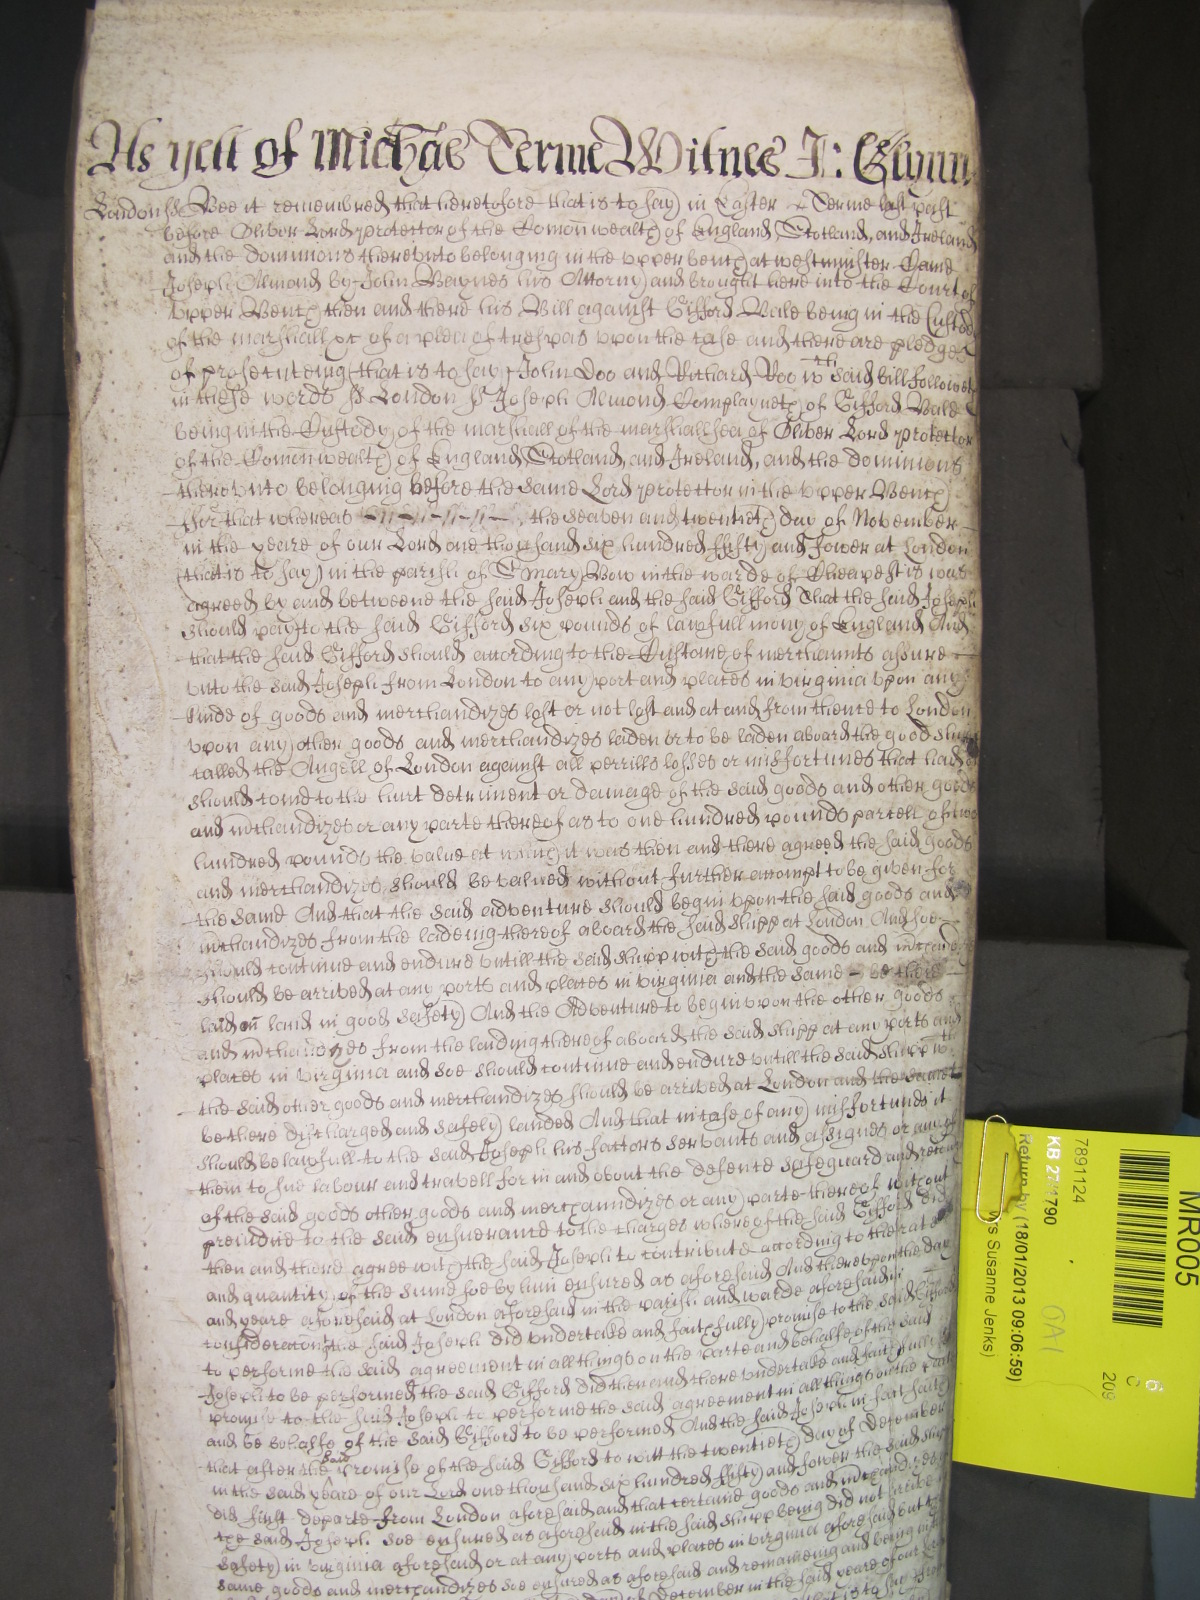 As yett of Michās Terme Witnes J: Glynn
London ss Bee it remembred that heretofore that is to say in Easter Terme last past
before Oliver Lord protector of the Comōnwealth of England, Scotland, and Ireland
and the dominions therevnto belonging in the vpper bench at westminster Came
Joseph Almond by John Baynes his Attorny and brought here into the Court of
Vpper Bench then and there his Bill against Gifford Bale being in the Custody
of the marshall &c of a plea of trespas vpon the case and there are pledges
of prosecuteing that is to say John Doo and Richard Roo wch said bill followeth
in these words ss London ss Joseph Almond Complayneth of Gifford Bale
being in the Custody of the marshall of the marshallsea of Oliver Lord protector
of the Comonwealth of England, Scotland, and Ireland, and the dominions
therevnto belonging before the same Lord protector in the vpper Bench
for that whereas the seaven and twentieth day of November
in the yeare of our Lord one thousand six hundred fifty and fower at London
(that is to say) in the parish of St Mary Bow in the warde of Cheape it was
agreed by and betweene the said Joseph and the said Gifford That the said Joseph
should pay to the said Gifford six pounds of lawfull mony of England And
that the said Gifford should according to the Custome of merchaunts assure
vnto the said Joseph from London to any port and places in virginia vpon any
kinde of goods and merchandizes lost or not lost and at and from thence to London
vpon any other goods and merchandizes laden or to be laden aboard the good shipp
called the Angell of London against all perrills losses or misfortunes that had or
should come to the hurt detriment or damage of the said goods and other goods
and mchandizes or any parte thereof as to one hundred pounds parcell of two
hundred pounds the value at which it was then and there agreed the said goods
and merchandizes should be valued without further accompt to be given for
the same And that the said adventure should begin vpon the said goods and
mchandizes from the ladeing thereof aboard the said shipp at London And soe
should continue and endure vntill the said shipp with the said goods and mchandizes
should be arrived at any ports and places in virginia and the same be there
laid on land in good safety And the Adventure to begin vpon the other goods
and mchandizes from the lading thereof aboard the said shipp at any ports and
places in virginia and soe should continue and endure vntill the said shipp wth
the said other goods and merchandizes should be arrived at London and the same
be there discharged and safely landed And that in case of any misfortunes it
should be lawfull to the said Joseph his factors servants and assignes or any of
them to sue labour and travell for in and about the defence safeguard and recovery
of the said goods other goods and merchandizes or any parte thereof without
prejudice to the said ensurance to the charges whereof the said Gifford did
then and there agree with the said Joseph to contribute according to the rate
and quantity of the sume soe by him ensured as aforesaid And therevpon the day
and yeare aforesaid at London aforesaid in the parish and warde aforesaid in
consideracon the said Joseph did vndertake and faithfully promise to the said Gifford
to performe the said agreement in all things on the parte and behalfe of the said
Joseph to be performed the said Gifford did then and there vndertake and faithfully
promise to the said Joseph to performe the said agreement in all things on the parte
and be behalfe of the said Gifford to be performed And the said Joseph in fact saith
that after the said promise of the said Gifford to witt the twentieth day of December
in the said yeare of our Lord one thousand six hundred fifty and fower the said shipp
did first departe from London aforesaid and that certaine goods and mchandizes
the said Joseph soe ensured as aforesaid in the said shipp being did not arrive in
safety in virginia aforesaid or at any ports and places in virginia aforesaid but the
same goods and merchandizes soe ensured as aforesaid and remaineing and being in
of December in the said yeare of our
MR005
7891124
KB 27/1790
Return by (18/01/2013 09:06:59)
Ms Susanne Jenks)
209